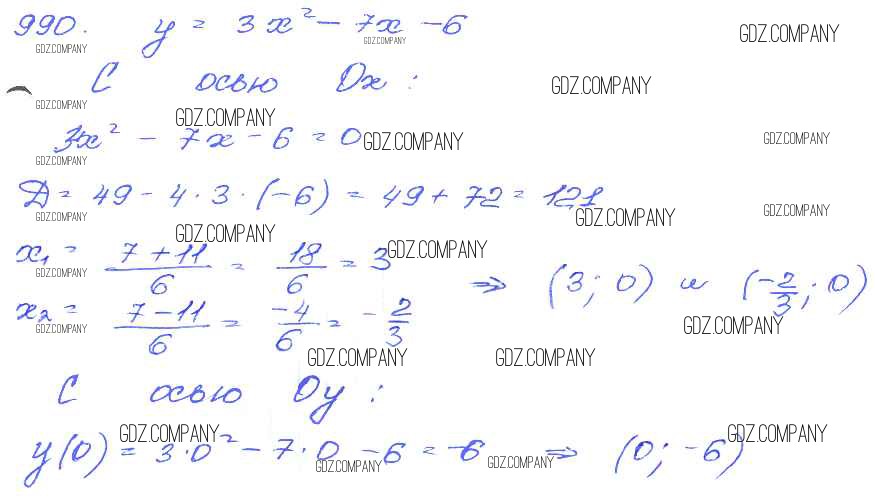 990. y = 3x² - 7x - 6
GDZ.COMPANY GDZ.COMPANY GDZ.COMPANY
С осью Ox : GDZ.COMPANY
GDZ.COMPANY GDZ.COMPANY
3x² - 7x - 6 = 0 GDZ.COMPANY GDZ.COMPANY
GDZ.COMPANY
Д = 49 - 4 · 3 · (-6) = 49 + 72 = 121
GDZ.COMPANY GDZ.COMPANY GDZ.COMPANY
GDZ.COMPANY
x₁ = (7 + 11)/6 = 18/6 = 3 GDZ.COMPANY
GDZ.COMPANY
⇒ (3; 0) и (-2/3; 0)
x₂ = (7 - 11)/6 = -4/6 = -2/3
GDZ.COMPANY GDZ.COMPANY
GDZ.COMPANY GDZ.COMPANY
С осью Oy :
GDZ.COMPANY GDZ.COMPANY
y(0) = 3·0² - 7·0 - 6 = -6 ⇒ (0; -6)
GDZ.COMPANY GDZ.COMPANY